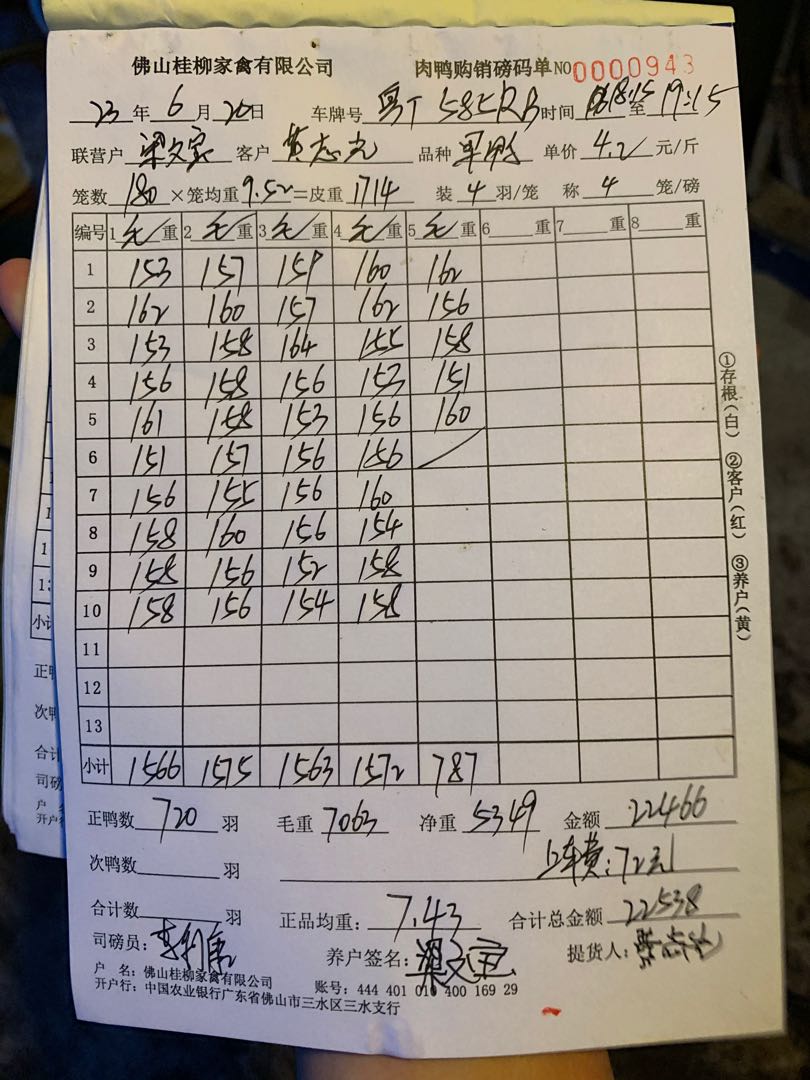 佛山桂柳家禽有限公司 肉鸭购销磅码单 NO 0000943
23年6月20日 车牌号 粤T 585RB 时间 18:15至19:15
联营户 梁文宽 客户 黄志光 品种 单价 4.2 元/斤
笼数 180 ×笼均重 9.52 =皮重 1714 装 4 羽/笼 称 4 笼/磅
编号 1 毛 重 2 毛 重 3 毛 重 4 毛 重 5 毛 重 6 重 7 重 8 重
1 153 157 159 160 162
2 162 160 157 162 156
3 153 158 164 155 158
4 156 158 156 153 151
5 161 158 153 156 160
6 151 157 156 156
7 156 155 156 160
8 158 160 156 154
9 158 156 152 158
10 158 156 154 158
11
12
13
小计 1566 1575 1563 1572 787
正鸭数 720 羽 毛重 7063 净重 5349 金额 22466
次鸭数 羽 上车费:72元
合计数 羽 正品均重: 7.43 合计总金额 22538
司磅员: 养户签名: 梁文宽 提货人: 黄志光
户 名: 佛山桂柳家禽有限公司 账号: 444 401 010 400 169 29
开户行: 中国农业银行广东省佛山市三水区三水支行
①存根(白) ②客户(红) ③养户(黄)